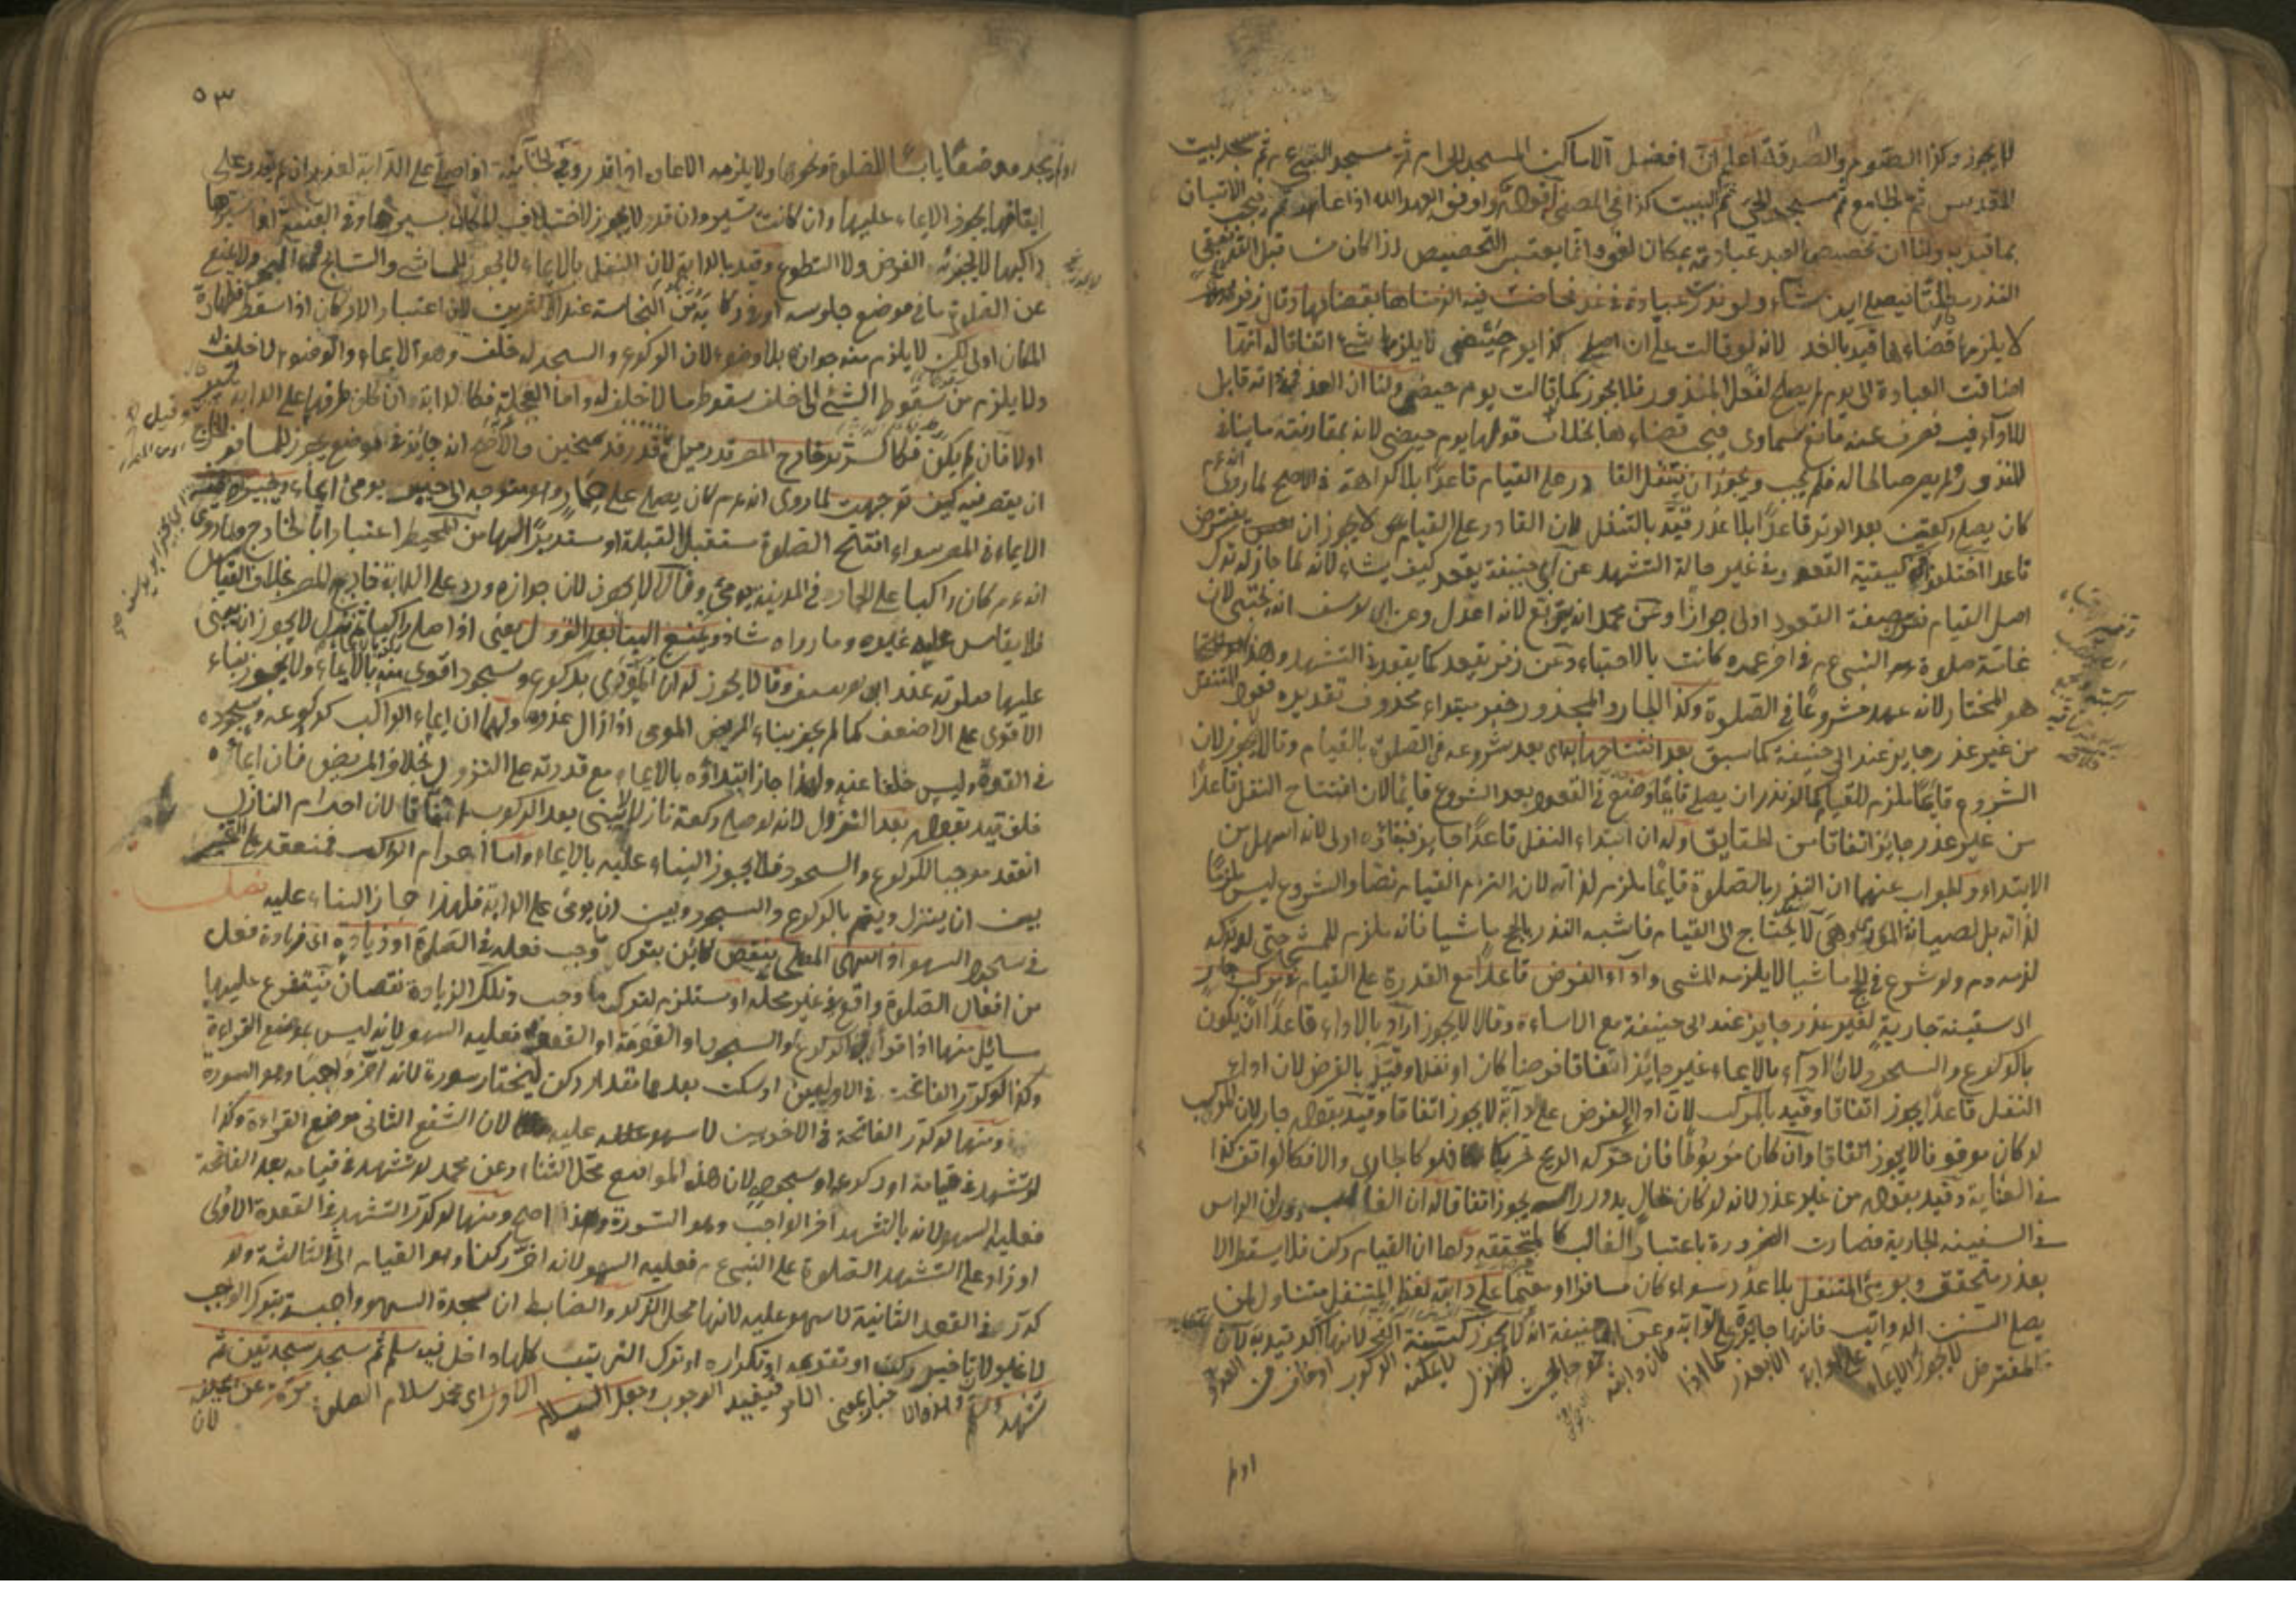 لا يجوز وكذا الصوم والصدقة اعلم ان افضل الاماكن المسجد الحرام ثم مسجد النبي ء م ثم مسجد بيت
المقدس ثم الجامع ثم مسجد الحي ثم البيت كذا في المصفى
بما قيد به ولنا ان تخصيص العبد عبادته بمكان لغو وانما يعتبر التخصيص اذا كان
النذر مطلقا فيصلي اين شاء ولو نذرت عبادة في غد فحاضت فيه الزمناها بقضائها وقال زفر
لا يلزمها قضاء ما قيد بالغد لانه لو قالت علي ان اصلي كذا يوم حيضي لا يلزمها شيء اتفاقا له انها
اضافت العبادة الى يوم لم يصلح لفعل المنذور فلا يجوز كما قالت يوم حيضي ولنا ان الغد قابل
للاداء فيه فعرف عنه مانع سماوي فيجب قضاءها بخلاف قولها يوم حيضي لانه بمقارنته ما ينافي
للنذور لم يصر صالحا له فلم يجب ويجوز ان يتنفل القادر على القيام قاعدا بلا كراهة في الاصح لما روي انه ءم
كان يصلي ركعتين بعد الوتر قاعدا بلا عذر قيد بالتنفل لان القادر على القيام لا يجوز ان يفترض
قاعدا اختلف في كيفية القعود في غير حالة التشهد عن ابي حنيفة يقعد كيف يشاء لانه لما جاز له ترك
اصل القيام فترك صفة القعود اولى جوازا وعن محمد انه يتربع لانه اعدل وعن ابي يوسف انه يحتبي لان
عامة صلوة النبي ءم في اخر عمره كانت بالاحتباء وعن زفر يقعد كما يقعد في التشهد وهذا
هو المختار لانه عهد مشروعا في الصلوة وكذا الجار والمجرور خبر مبتداء محذوف تقديره قعود المتنفل
من غير عذر جايز عند ابي حنيفة كما سبق بعد افتتاحها اي بعد شروعه في الصلوة بالقيام وقالا لا يجوز لان
الشروع قائما ملزم للقيام كما لو نذر ان يصلي قائما وضع في القعود بعد الشروع قايما لان افتتاح النفل قاعدا
من غير عذر جايز اتفاقا من الحقايق وله ان ابتداء النفل قاعدا جايز فبقائه اولى لانه اسهل من
الابتداء والجواب عنهما ان النذر بالصلوة قائما ملزم لذاته لان التزام القيام نصا والشروع ليس ملزما
لذاته بل لصيانة المؤدى وهي لا يحتاج الى القيام فاشبه النذر بالحج ماشيا فانه ملزم للمشي حتى لو تركه
لزمه دم ولو شرع في الحج ماشيا لا يلزمه المشي واداء الفرض قاعدا مع القدرة على القيام
في سفينة جارية لغير عذر جايز عند ابي حنيفة مع الاساءة وقالا لا يجوز اراد بالاداء قاعدا ان يكون
بالركوع والسجود لان اداء بالايماء غير جايز اتفاقا فرضا كان او نفلا وقيد بالفرض لان اداء
النفل قاعدا يجوز اتفاقا وقيد بالمركب لان اداء الفرض على دابة لا يجوز اتفاقا وقيد بقوله جار لان المركب
لو كان موقوفا لا يجوز اتفاقا وان كان مربوطا فان حركه الريح تحريكا فهو كالجاري والا فكالواقف كذا
في الغاية وقيد بقوله من غير عذر لانه لو كان بحال يدور رأسه يجوز اتفاقا له ان الغالب دوران الراس
في السفينة الجارية فصارت الضرورة باعتبار الغالب كالمتحققة ولهما ان القيام ركن فلا يسقط الا
بعذر متحقق ويومئ المتنفل بلا عذر سواء كان مسافرا او مقيما على دابة لفظ المتنفل متناول لمن
يصلي السنن الرواتب فانها جايزة على الدابة وعن ابي حنيفة انه لا يجوز سنة الفجر لانها اكد قيد به لان
المفترض لا يجوز الايماء على الدابة الا بعذر كما اذا كان دابته جموحا لو نزل لا يمكنه الركوب او خاف من العدو
اولم
٥٣
اولم يجد موضعا يابسا للصلوة ونحوها ولا يلزمه الاعادة اذا قدر وفي الخانية اذا صلى على الدابة لعذر ان لم يقدر على
ايقافها يجوز الايماء عليها وان كانت تسير وان قدر لا يجوز لاختلاف المكان بسيرها وفي القنية اذا سيرها
راكبها لا يجوز الفرض ولا التطوع وقيد بالدابة لان التنفل بالايماء لا يجوز للماشي والسابح في البحر ولا يمنع
عن الصلوة ما في موضع جلوسه او ركابه من النجاسة عند الاكثرين لان اعتبار الاركان اذا سقط فطهارة
المكان اولى لكن لا يلزم منه جوازه بلا وضوء لان الركوع والسجود له خلف وهو الايماء والوضوء لا خلف له
ولا يلزم من سقوط الشيء الى خلف سقوط ما لا خلف له واما العجلة فكالدابة ان كان طرفها على الدابة
اولا فان لم يكن فكالسرير خارج المصر قدر ميل او قدر فرسخين والاصح انه جائز في موضع يجوز للمسافر
ان يقصر فيه كيف توجهت لما روي انه ءم كان يصلي على حمار وهو متوجه الى خيبر يومئ ايماء
الايماء في المصر سواء افتتح الصلوة مستقبل القبلة او مستدبرا لها من المحيط اعتبارا بالخارج ولما روي
انه ءم كان راكبا على الحمار في المدينة يومئ وقالا لا يجوز لان جوازه ورد على الدابة خارج المصر بخلاف القياس
فلا يقاس عليه غيره وما رواه شاذ ويمنع البناء بعد النزول يعني اذا صلى راكبا ثم نزل لا يجوز ان يبني
عليها صلوته عند ابي يوسف وقالا يجوز له ان المؤدى بركوع وسجود اقوى منه بالايماء ولا يجوز بناء
الاقوى على الاضعف كما لم يجز بناء المريض المومي اذا زال عذره ولهما ان ايماء الراكب كركوعه وسجوده
في القوة وليس خلفا عنه ولهذا جاز ابتداؤه بالايماء مع قدرته على النزول بخلاف المريض فان ايماءه
خلف قيد بقوله بعد النزول لانه لو صلى ركعة نازلا لا يبني بعد الركوب اتفاقا لان احرام النازل
انعقد موجبا للركوع والسجود فلا يجوز البناء عليه بالايماء واما احرام الراكب فمنعقد على التخيير
بين ان ينزل ويتم بالركوع والسجود وبين ان يومئ على الدابة فلهذا جاز البناء عليه فصل
في سجود السهو اذا سهى المصلي بنقص كائن بترك ما وجب فعله في الصلوة او زيادة اي زيادة فعل
من افعال الصلوة واقع في غير محله او مستلزم لترك ما وجب وتلك الزيادة نقصان فيتفرع عليها
مسائل منها اذا قرأ في الركوع او السجود او القومة او القعود فعليه السهو لانه ليس بموضع القراءة
وكذا لو كرر الفاتحة في الاوليين او سكت بعدها مقدار ركن ليختار سورة لانه اخر واجبا وهو السورة
ومنها لو كرر الفاتحة في الاخريين لا سهو عليه لان الشفع الثاني موضع القراءة وكذا
لو تشهد في قيامه او ركوعه او سجوده لان هذه المواضع محل الثناء وعن محمد لو تشهد في قيامه بعد الفاتحة
فعليه السهو لانه بالتشهد اخر الواجب وهو السورة وهذا اصح ومنها لو كرر التشهد في القعدة الاولى
او زاد على التشهد الصلوة على النبي ءم فعليه السهو لانه اخر ركنا وهو القيام الى الثالثة ولو
كرر في القعدة الثانية لا سهو عليه لانها محل الذكر والضابط ان سجدة السهو واجبة بترك الواجب
لا غير لان تأخير ركن او تقديمه او تكراره او ترك الترتيب كلها داخل فيه سلم ثم سجد سجدتين ثم
تشهد وسلم وهذه الاخبار بمعنى الامر فيفيد الوجوب وجعل السلام الاول اي محمد سلام المصلي مرة عن يمينه
لان